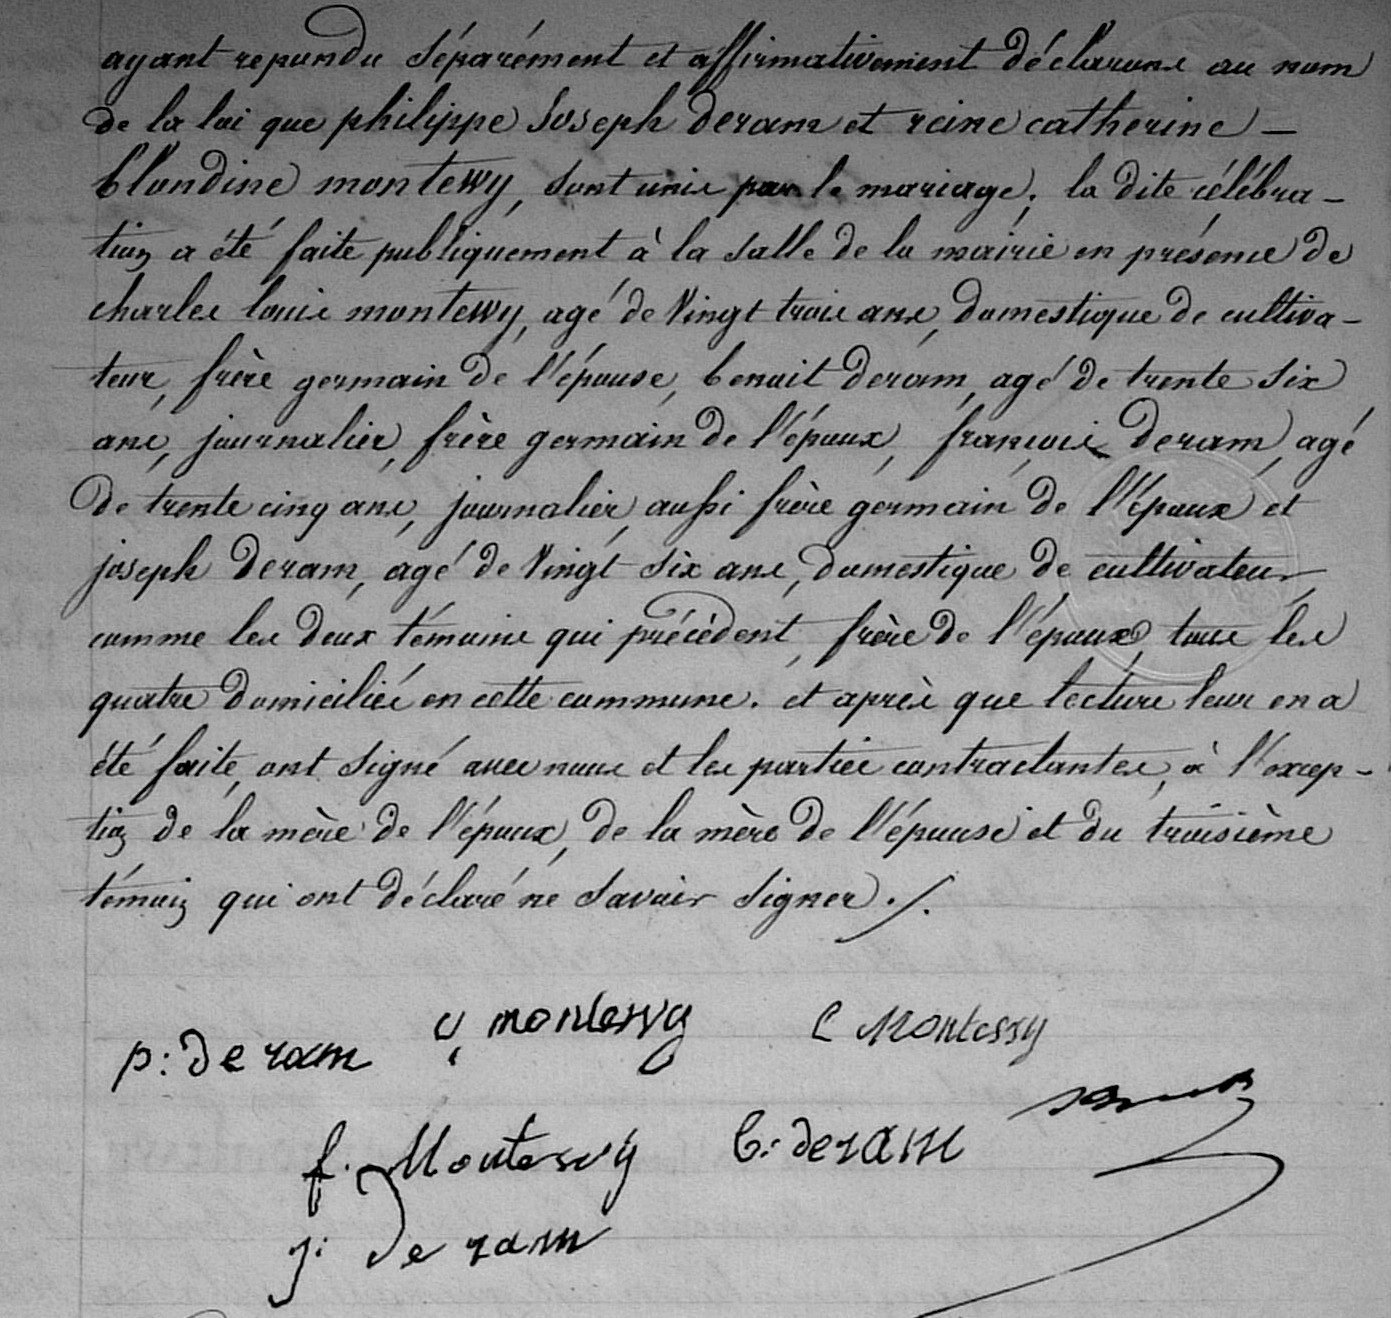 ayant repondu séparément et affirmativement déclarons au nom
de la loi que philippe Joseph deram et reine catherine –
blandine montewy, sont unis par le mariage; la dite célébra –
tion a été faite publiquement à la salle de la mairie en présence de
charles louis montewy, agé de Vingt trois ans, domestique de cultiva –
teur, frère germain de l'épouse, benoit deram, agé de trente six
ans, journalier, frère germain de l'époux, françois deram, agé
de trente cinq ans, journalier, aussi frère germain de l'époux et
joseph deram, agé de Vingt six ans, domestique de cultivateur,
comme les deux témoins qui précèdent, frère de l'époux, tous les
quatre domiciliés en cette commune. et après que lecture leur en a
été faite, ont signé avec nous et les parties contractantes, à l'excep –
tion de la mère de l'époux, de la mère de l'épouse et du troisième
témoin qui ont déclaré ne savoir signer ./.
p: deram montessvy C Montessy
f. Montesvy b: deram
j: deram